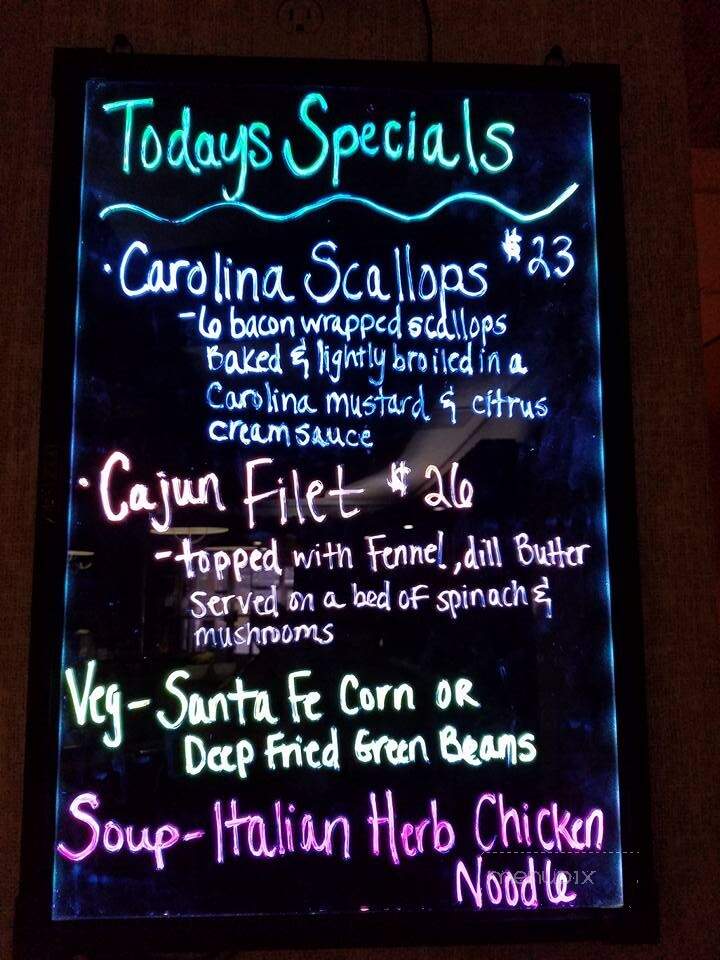 Todays Specials
· Carolina Scallops $23
- 6 bacon wrapped scallops
Baked & lightly broiled in a
Carolina mustard & citrus
cream sauce
· Cajun Filet $26
- topped with Fennel, dill Butter
served on a bed of spinach &
mushrooms
Veg - Santa Fe Corn OR
Deep Fried Green Beans
Soup - Italian Herb Chicken
Noodle
menupix